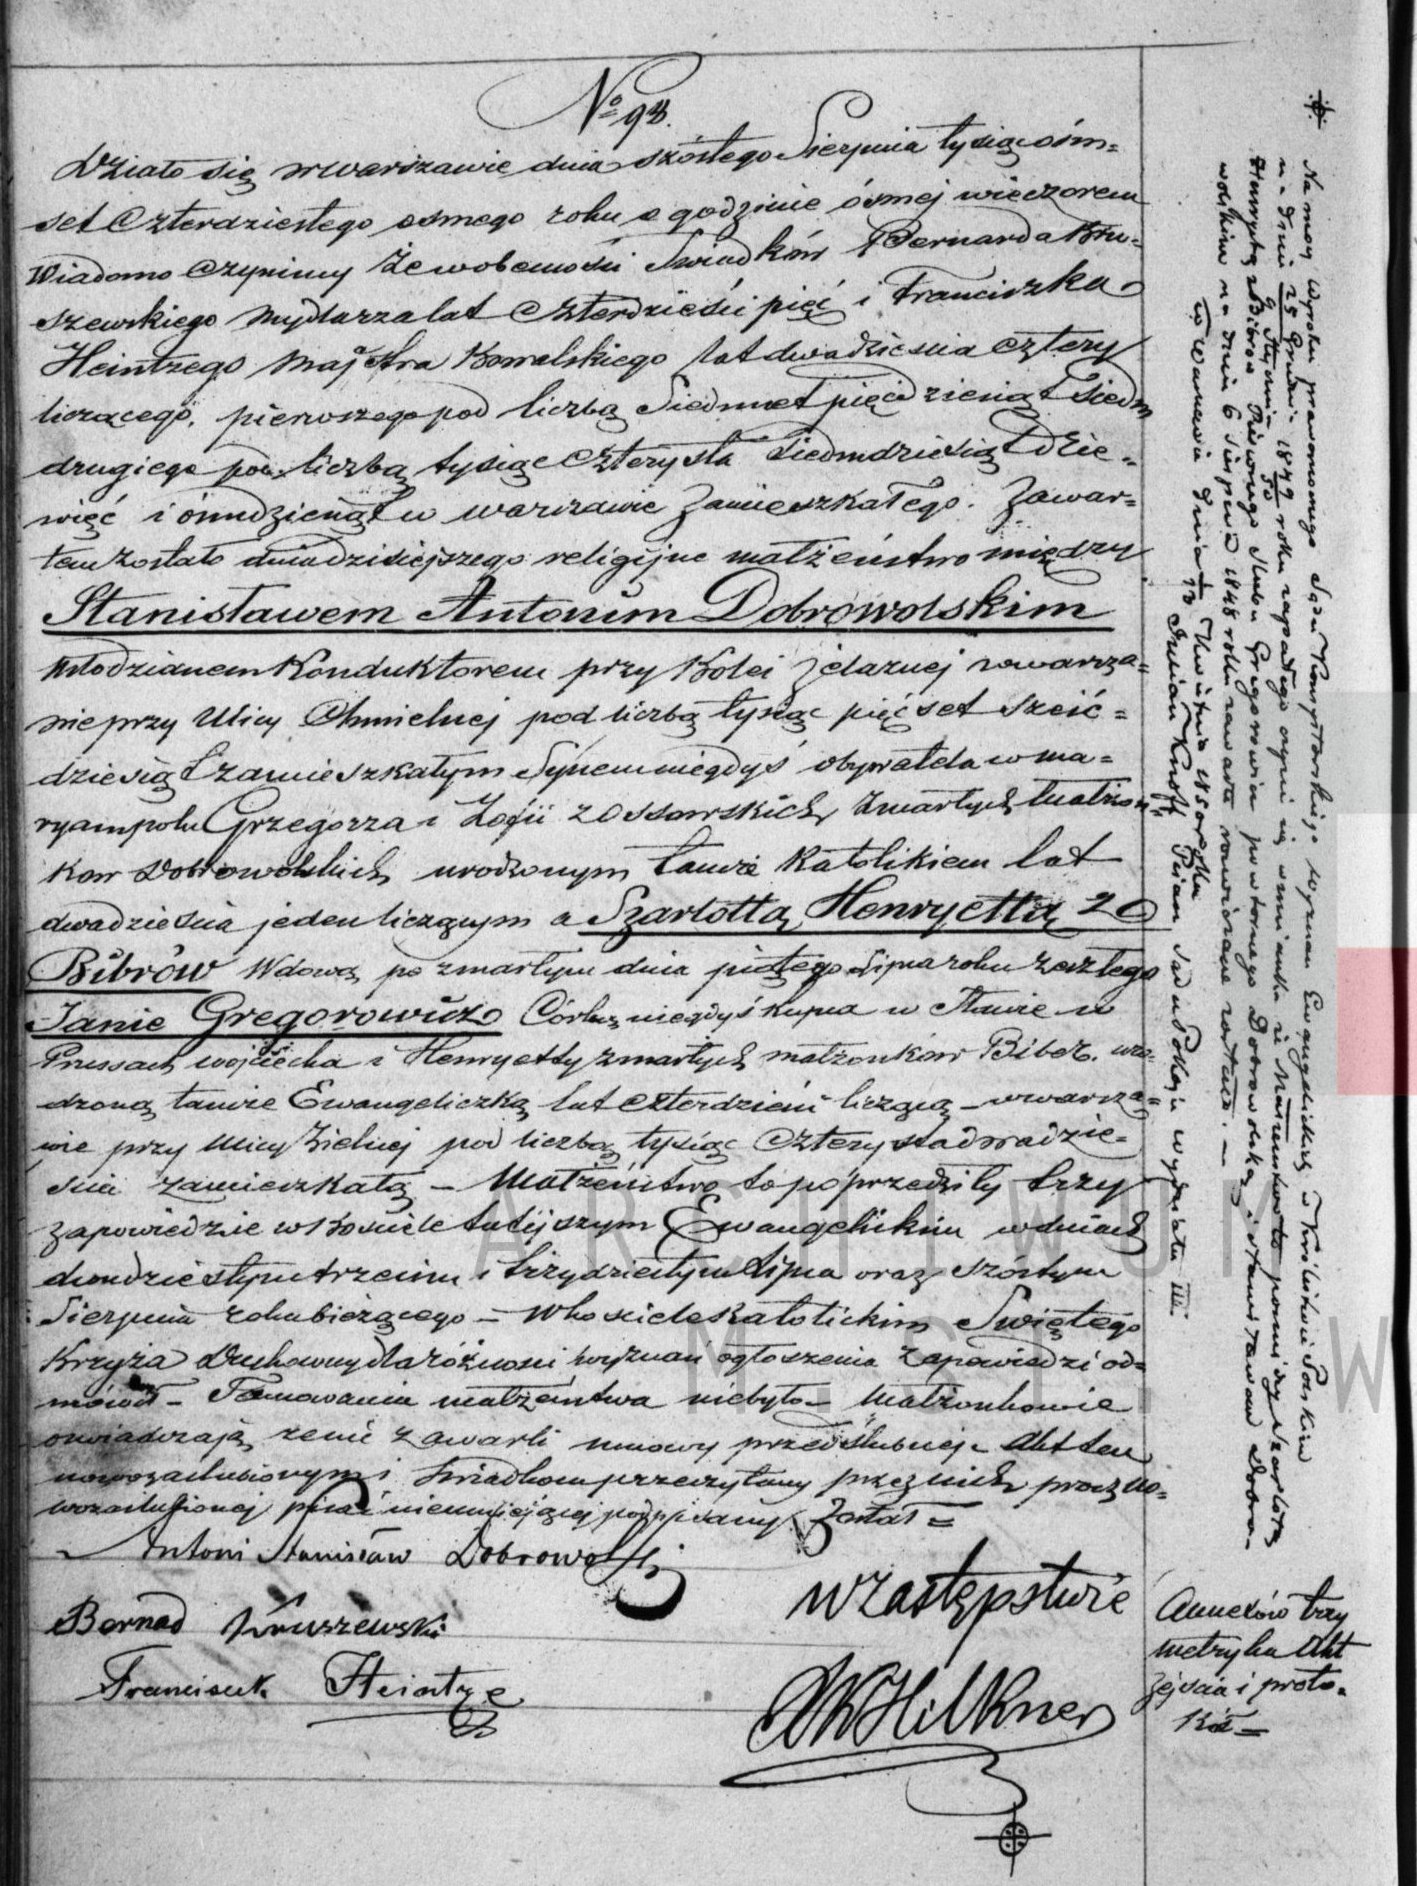 No 98.
Działo się w Warszawie dnia szóstego Sierpnia tysiąc óśm=
set czterdziestego osmego roku o godzinie ósmej wieczorem
Wiadomo czynimy że w obecności Świadków Bernarda Kru=
szewskiego Mydlarza lat czterdzieści pięć i Franciszka
Heintzego Majstra Kowalskiego lat dwadzieścia cztery
liczącego, pierwszego pod liczbą Siedmset pięćdziesiąt Siedm
drugiego pod liczbą tysiąc czterysta siedmdziesiąt dzie=
więć i w Warszawie zamieszkałego. Zawar=
tem zostało dnia dzisiejszego religijne małżeństwo między
Stanisławem Antonim Dobrowolskim
Młodzianem Konduktorem przy Kolei żelaznej w Warsza=
wie przy Ulicy Chmielnej pod liczbą tysiąc pięćset sześć=
dziesiąt zamieszkałym Synem niegdyś obywatela w Ma=
ryampolu Grzegorza i Zofii z Ossowskich zmarłych małżon=
ków Dobrowolskich urodzonym tamże Katolikiem lat
dwadzieścia jeden liczącym a Szarlottą Henryettą z
Bibrów Wdową po zmarłym dnia piątego Lipca roku zeszłego
Janie Gregorowicz Córką niegdyś kupca w w
Prusach Wojciecha i Henryetty zmarłych małżonków Biber. uro=
dzoną tamże Ewangeliczką lat czterdzieści liczącą – w Warsza=
wie przy Ulicy Zielnej pod liczbą tysiąc czterysta dwadzie=
ścia zamieszkałą – Małżeństwo to poprzedziły trzy
zapowiedzie w Kościele tutejszym Ewangelickim w dniach
dwudziestym trzecim i trzydziestym Lipca oraz szóstym
Sierpnia roku bieżącego – W Kościele Katolickim Świętego
Krzyża Duchowny dla różności wyznań ogłoszenia zapowiedzi od=
mówił – Tamowania małżeństwa nie było – Małżonkowie
oświadczają że nie zawarli umowy przedślubnej. Akt ten
nowozaślubionym i świadkom przeczytany przez nich prócz no=
wozaślubionej pisać nieumiejącej podpisany został =
Antoni Stanisław Dobrowolski
Bernad Kruszewski
Franciszek Heintze
W zastępstwie
Hilkner
Annexów trzy
metryka Akt
zejścia i proto=
kół =
Na mocy Wyroku prawomocnego Sądu Konsystorskiego wyznań Ewangelickich w Królestwie Polskim
na dniu 25 Grudnia 1849 / 9 Stycznia 50 roku zapadłego czyni się wzmianka iż Małżeństwo to pomiędzy Szarlottą
Henryettą z Bibrów Gregorowicz powtórnego Dobrowolską i Stanisławem Dobro=
wolskim na dniu 6 Sierpnia 1848 roku zawarte rozwiązane zostało. –
w Warszawie dnia 13 Kwietnia 1850 roku
Julian Pisarz Sądu Pokoju Wydziału III.
ARCHIWUM
M.ST. W